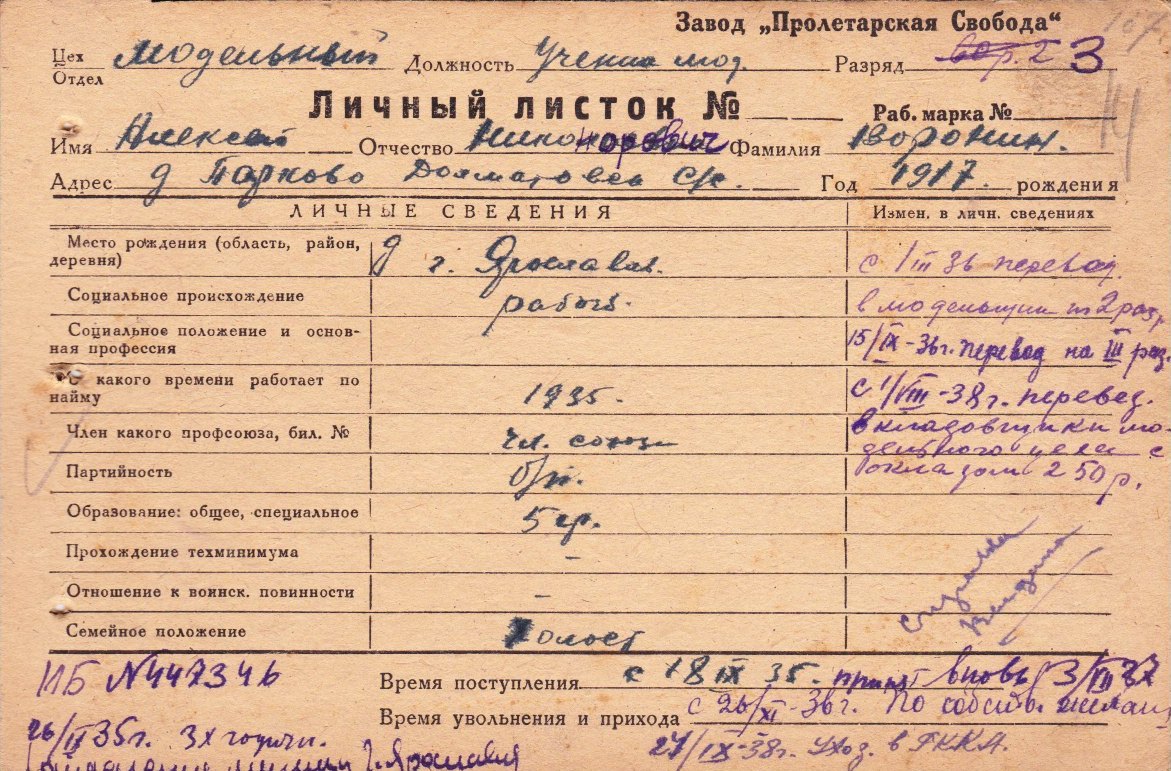 Завод „Пролетарская Свобода“
Цех Отдел Модельный Должность Ученик мод. Разряд 2 3
Личный листок № Раб. марка №
14
Имя Алексей Отчество Никонорович Фамилия Воронин.
Адрес д Парково С/с. Год 1917. рождения
ЛИЧНЫЕ СВЕДЕНИЯ Измен. в личн. сведениях
Место рождения (область, район, деревня) г. Ярославль. с 1/III 36 перевод.
Социальное происхождение рабоч. в модельщики 2 раз,
Социальное положение и основная профессия 15/IX-36г. перевод на III раз.
С какого времени работает по найму 1935. с 1/VIII-38г. перевед.
Член какого профсоюза, бил. № чл. союза в кладовщики модельного цеха с
Партийность б/п. окладом 250 р.
Образование: общее, специальное 5 гр.
Прохождение техминимума –
Отношение к воинск. повинности –
Справка
Семейное положение Холост
ИБ №447346
Время поступления с 18 IX 35. принят вновь 3/III 37
Время увольнения и прихода с 26/XI-36г. По собств. желан
26/II 35г. 3х годичн. 27/IX-38г. уход. в РККА.
г. Ярославля